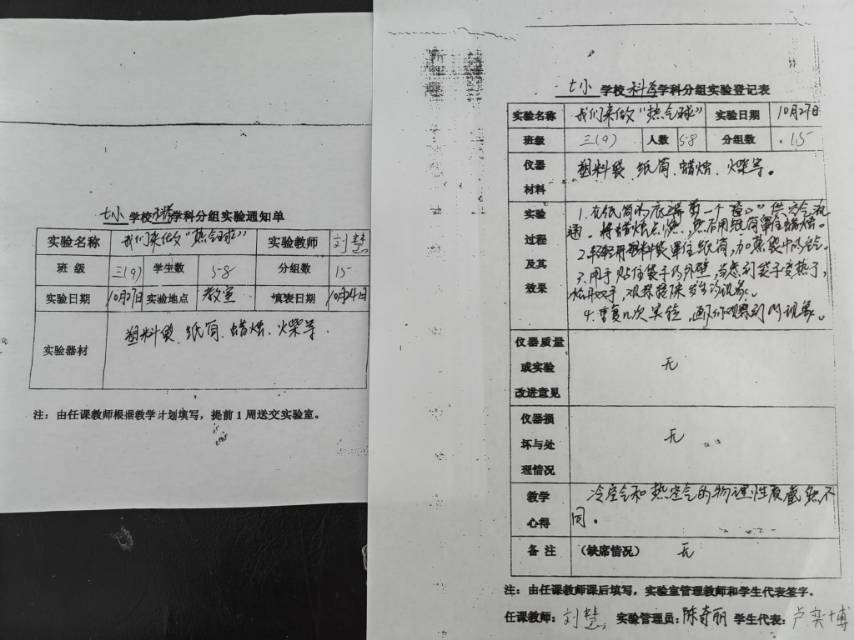 七小 学校科学学科分组实验通知单
实验名称 我们来做“热气球” 实验教师 刘慧
班 级 三(9) 学生数 58 分组数 15
实验日期 10月27日 实验地点 教室 填表日期 10月24日
实验器材 塑料袋、纸筒、蜡烛、火柴等.
注：由任课教师根据教学计划填写，提前1周送交实验室。
七小 学校 科学学科分组实验登记表
实验名称 我们来做“热气球” 实验日期 10月27日
班级 三(9) 人数 58 分组数 15
仪器 塑料袋、纸筒、蜡烛、火柴等。
材料
实验 1.在纸筒的底端剪一个“窗口”供空气流
过程 通。将蜡烛点燃，然后用纸筒罩住蜡烛。
及其 2.轻轻用塑料袋罩住纸筒，加热袋中的空气。
效果 3.用手贴住袋子的外壁，当感到袋子变热了，
松开双手，观察接下来发生的现象。
4.重复几次实验，画下你观察到的现象。
仪器质量
或实验 无
改进意见
仪器损
坏与处 无
理情况
教学 冷空气和热空气的物理性质截然不
心得 同。
备 注 （缺席情况） 无
注：由任课教师课后填写，实验室管理教师和学生代表签字。
任课教师：刘慧 实验管理员：陈奇丽 学生代表：卢奕博